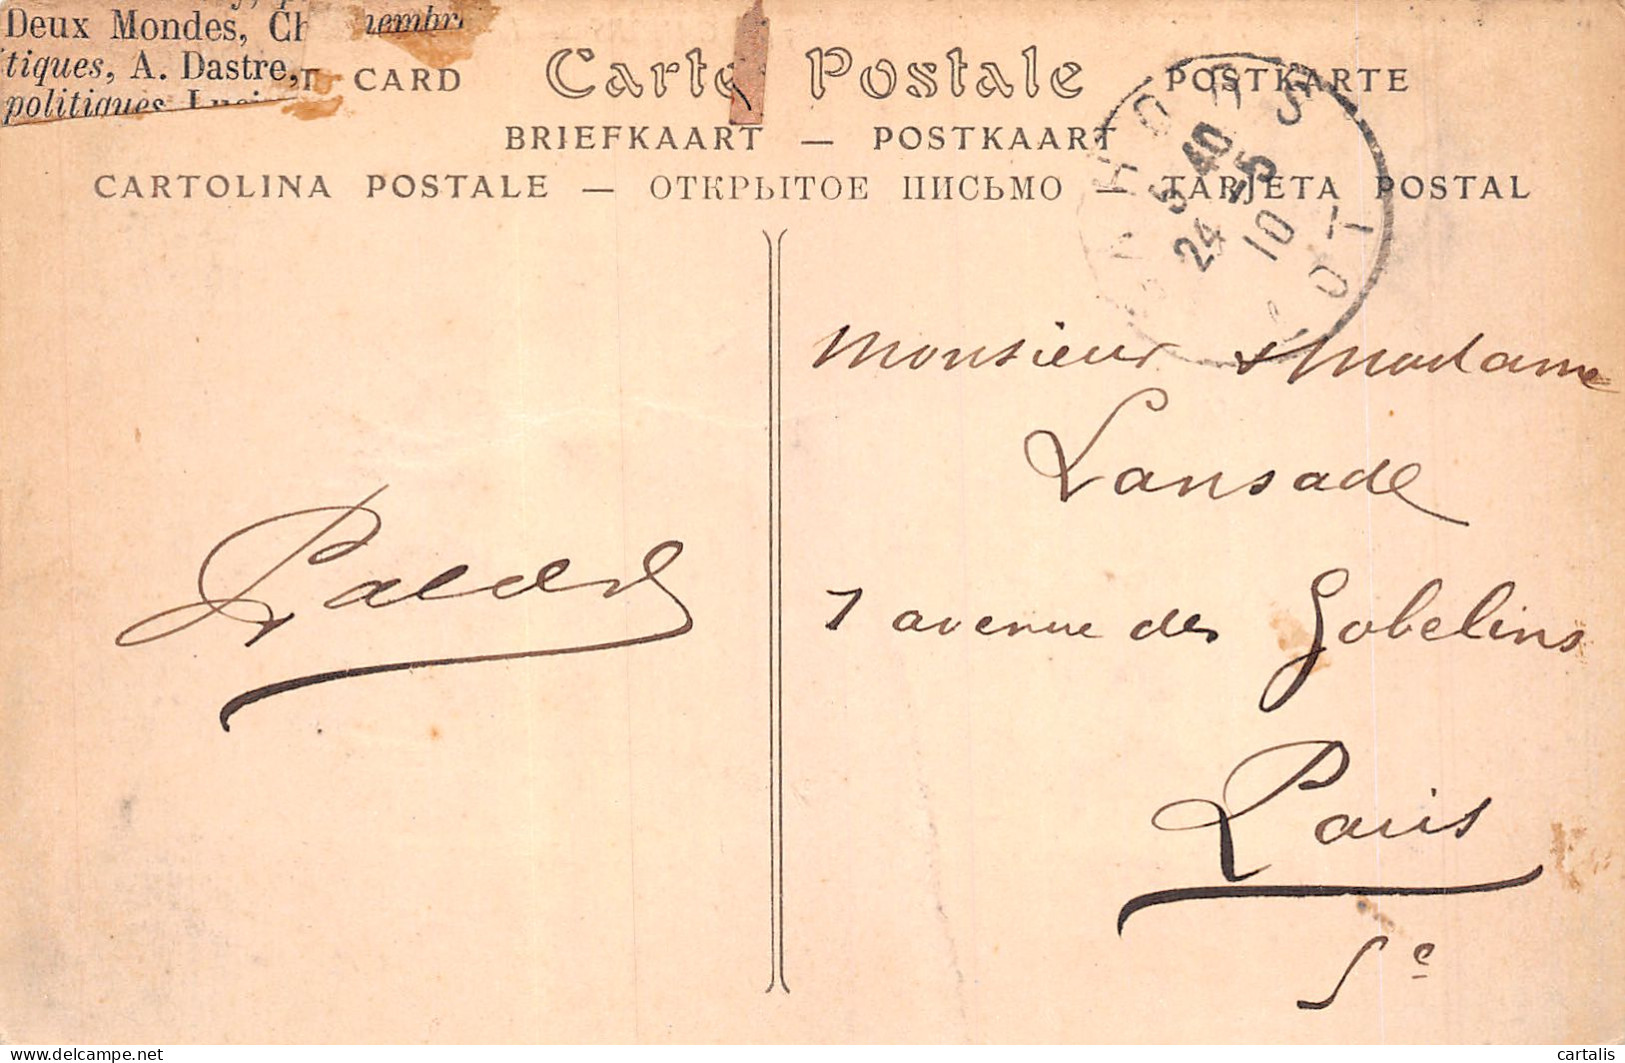 Deux Mondes, Ch
tiques, A. Dastre,
politiques
CARD
Carte Postale
POSTKARTE
BRIEFKAART — POSTKAART
CARTOLINA POSTALE — ОТКРЫТОЕ ПИСЬМО — TARJETA POSTAL
CAHORS
5 40
24 - 5
10
LOT
Monsieur & Madame
Lansade
7 avenue des Gobelins
Paris
5e
delcampe.net
cartalis